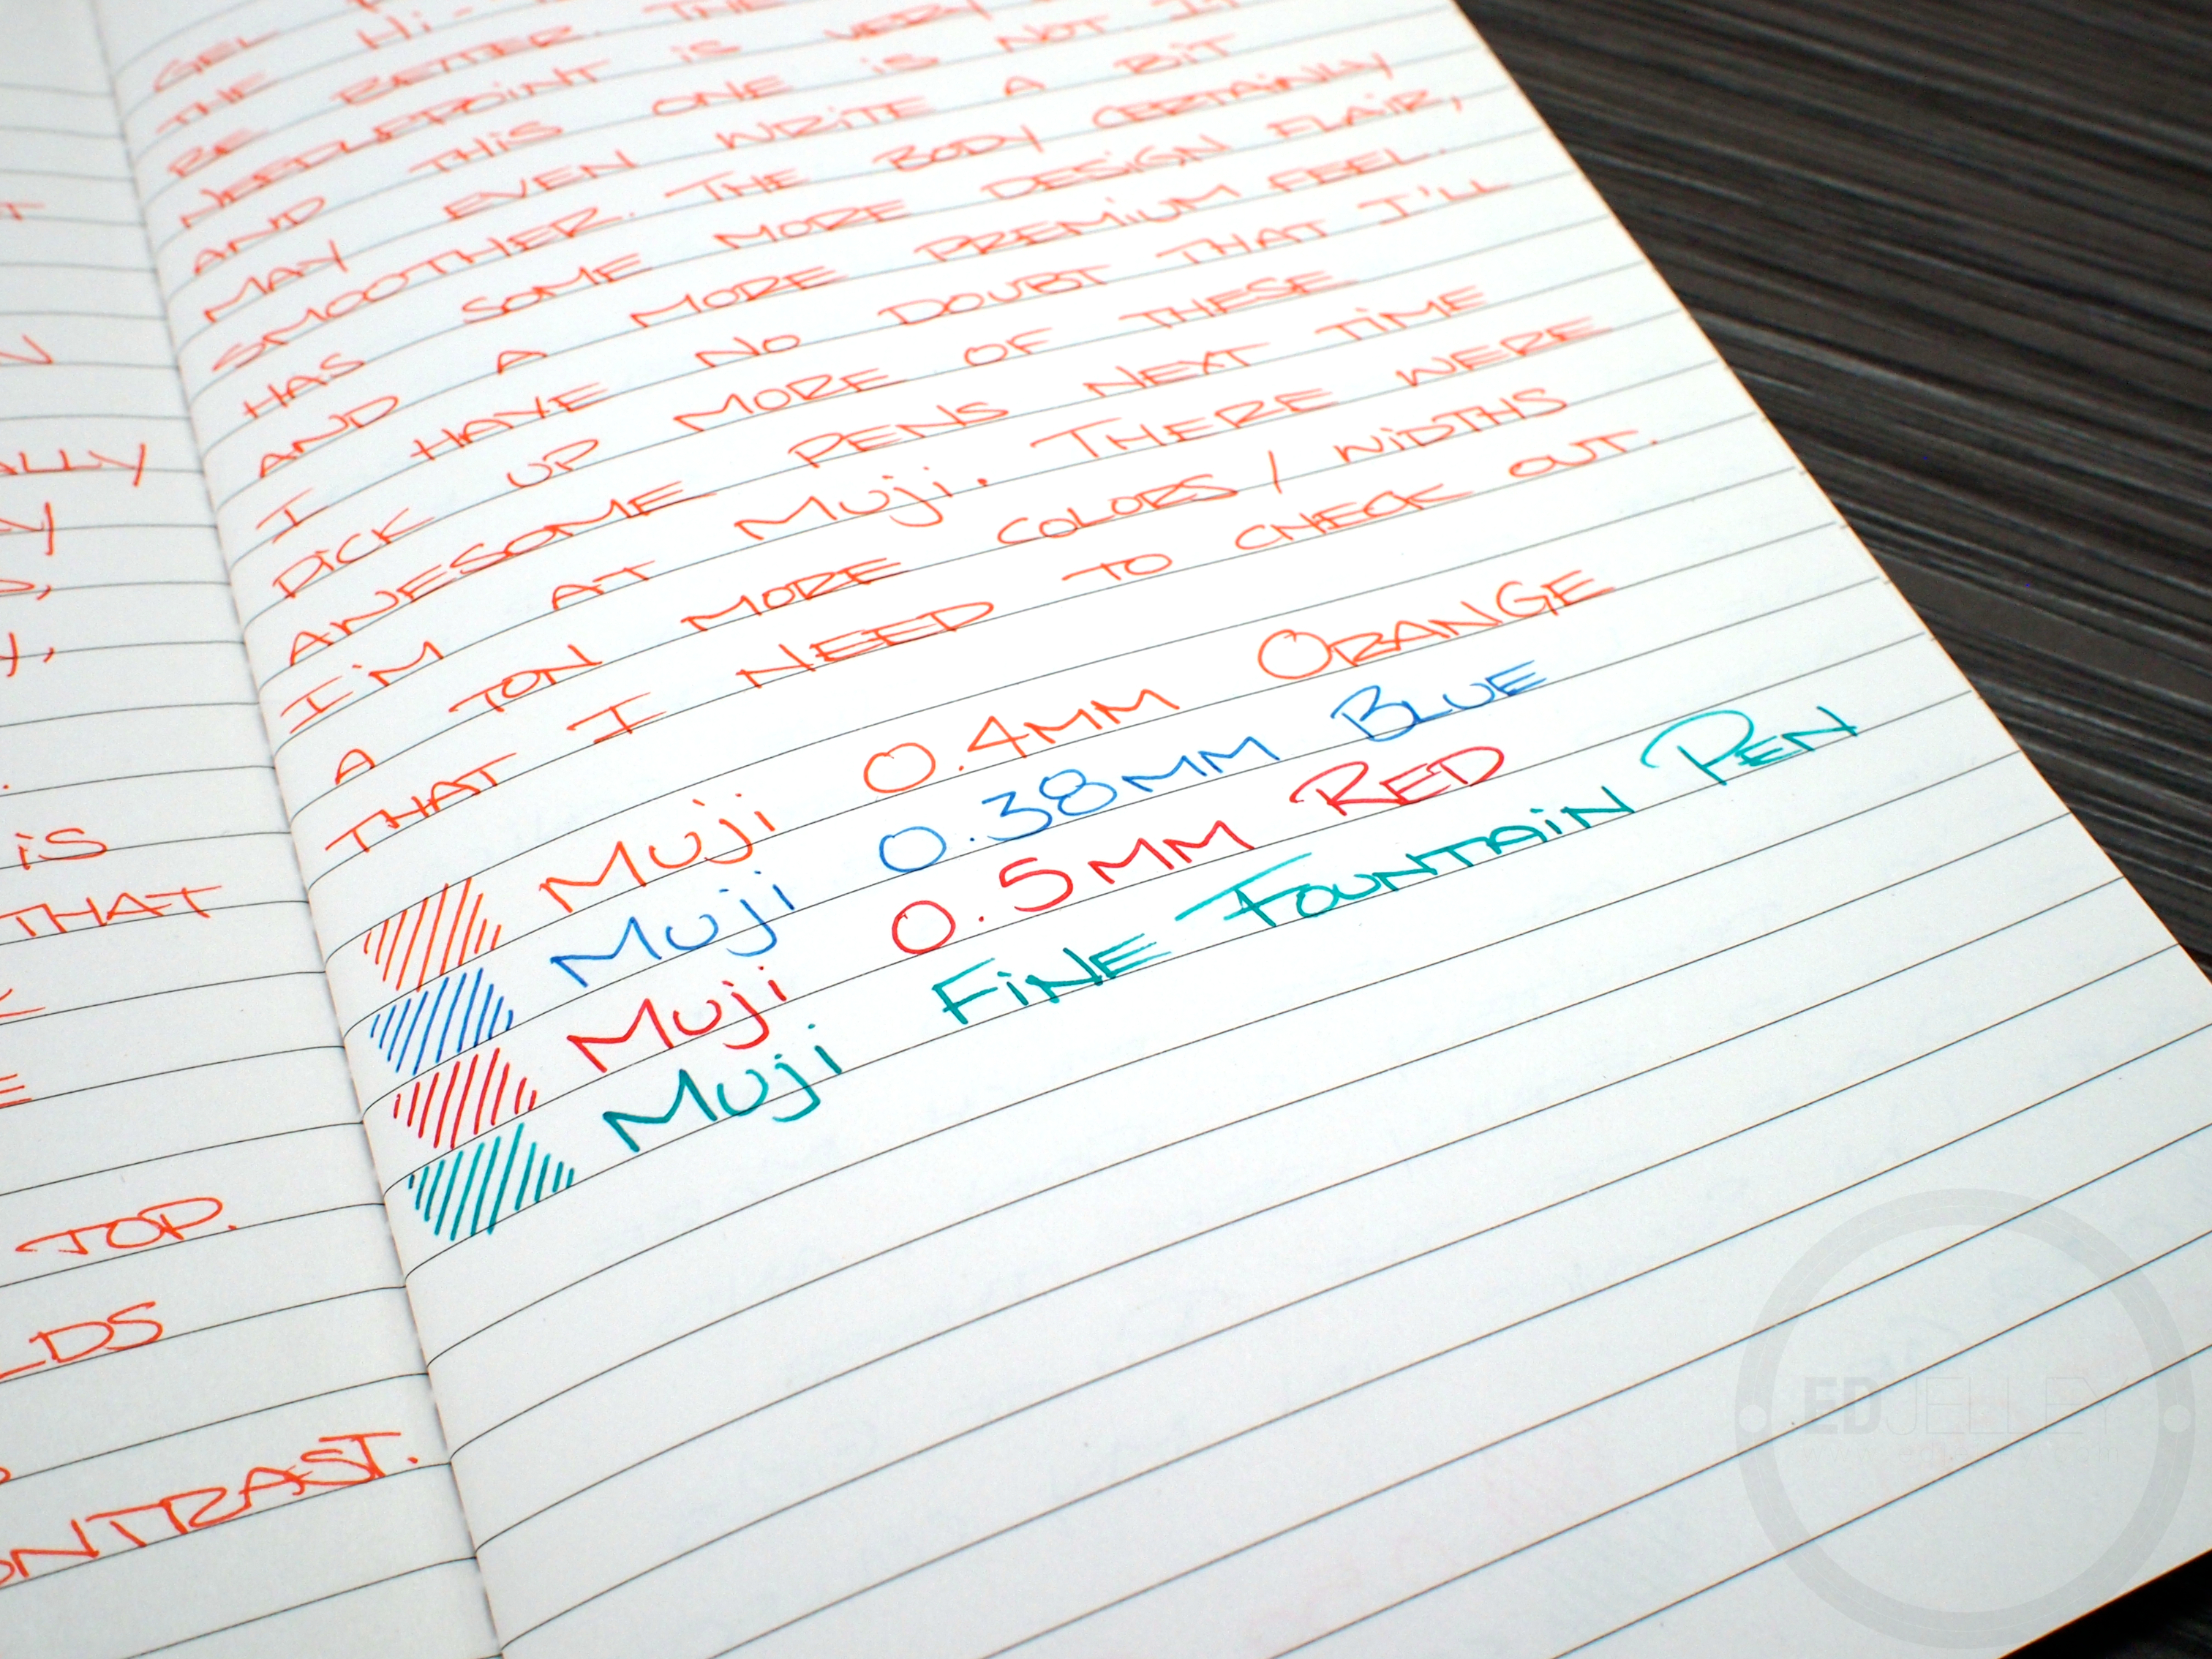 T
N
ALLY
iS
THAT
TOP.
LDS
ONTRAST.
GEL Hi-
THE BETTER. THE
RE NEEDLEPOINT iS VERY
AND THIS ONE iS NOT. IT
MAY EVEN WRiTE A BiT
SMOOTHER. THE BODY CERTAiNLY
HAS SOME MORE DESiGN FLAiR,
AND A MORE PREMiUM FEEL.
I HAVE NO DOUBT THAT I'LL
PiCK UP MORE OF THESE
AWESOME PENS NEXT TiME
I'M AT Muji. THERE WERE
A TON MORE COLORS / WiDTHS
THAT I NEED TO CHECK OUT.
Muji 0.4MM ORANGE
Muji 0.38MM BLUE
Muji 0.5MM RED
Muji FiNE FOUNTAiN PEN
EDJELLEY